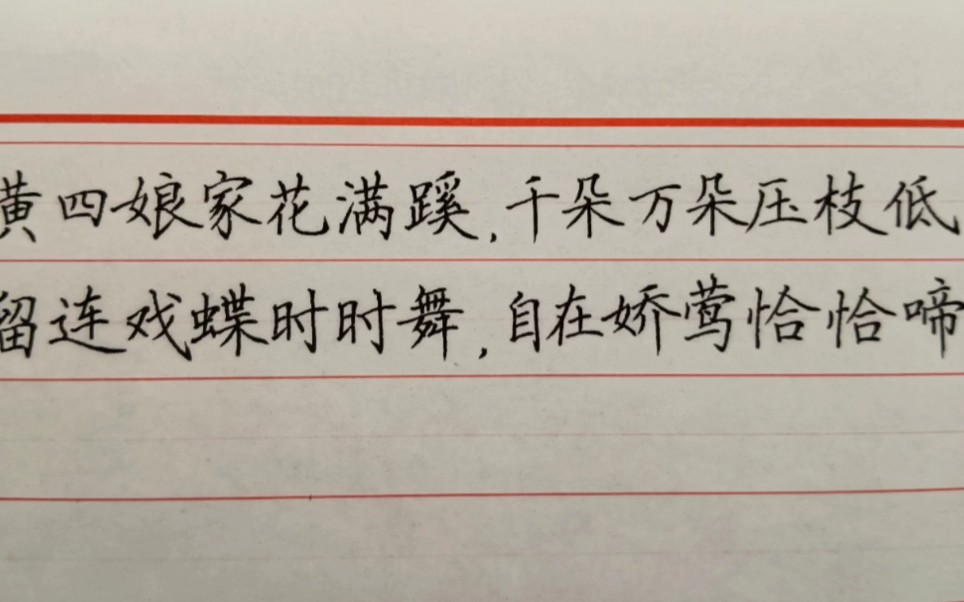 黄四娘家花满蹊,千朵万朵压枝低
留连戏蝶时时舞,自在娇莺恰恰啼